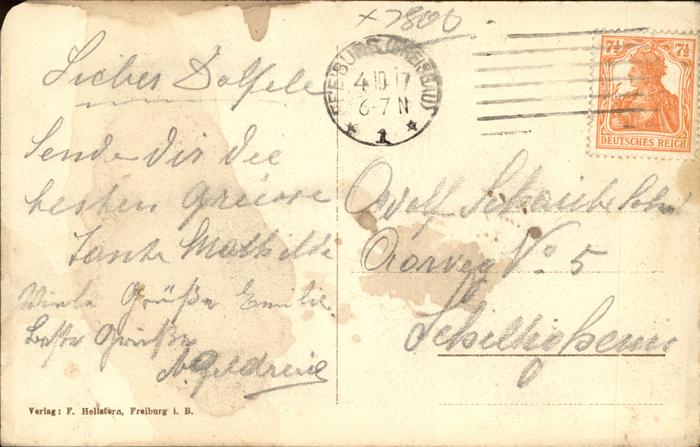 x 7800
FREIBURG (BREISGAU)
4.10.17
6-7 N
* 1 *
7½ 7½
DEUTSCHES REICH
Lieber Dolfele
Sende dir die
besten Grüsse
Tante Mathilde
Viele Grüße Emilie
Beste Grüße
Adolf Schaible
No 5
Verlag: F. Hellstern, Freiburg i. B.